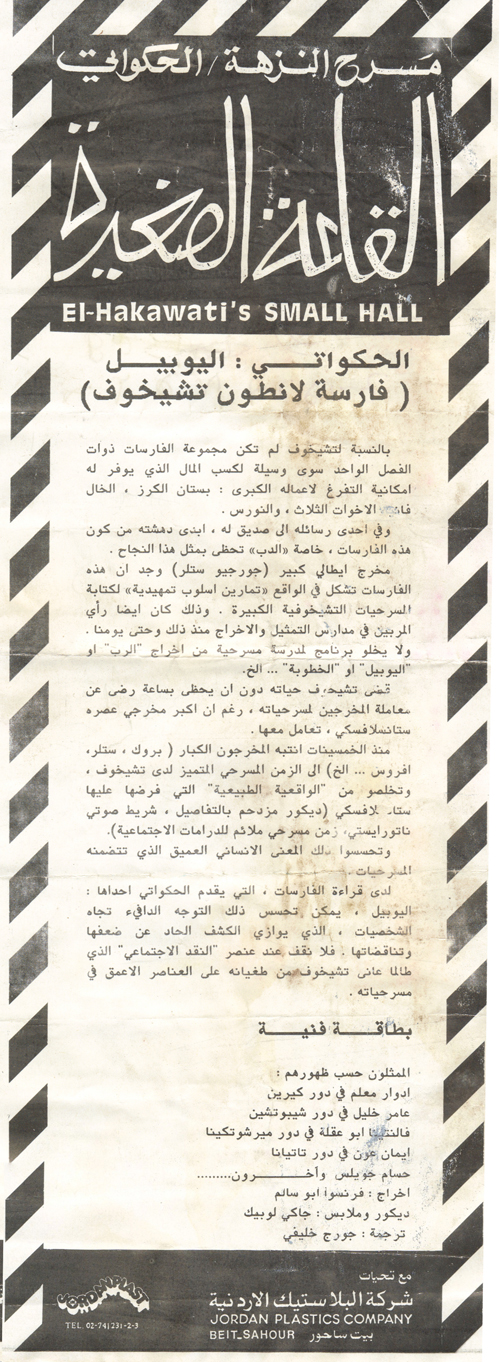 مسرح النزهة / الحكواتي
القاعة الصغيرة
El-Hakawati's SMALL HALL
الحكواتي : اليوبيل
( فارسة لانطون تشيخوف )
بالنسبة لتشيخوف لم تكن مجموعة الفارسات ذوات
الفصل الواحد سوى وسيلة لكسب المال الذي يوفر له
امكانية التفرغ لاعماله الكبرى : بستان الكرز ، الخال
فانيا الاخوات الثلاث ، والنورس .
وفي احدى رسائله الى صديق له ، ابدى دهشته من كون
هذه الفارسات ، خاصة «الدب» تحظى بمثل هذا النجاح .
مخرج ايطالي كبير (جورجيو ستلر) وجد ان هذه
الفارسات تشكل في الواقع «تمارين اسلوب تمهيدية» لكتابة
المسرحيات التشيخوفية الكبيرة . وذلك كان ايضا رأي
المربين في مدارس التمثيل والاخراج منذ ذلك وحتى يومنا .
ولا يخلو برنامج لمدرسة مسرحية من اخراج "الرب" او
"اليوبيل" او "الخطوبة" ... الخ.
قضى تشيخوف حياته دون ان يحظى بساعة رضى عن
معاملة المخرجين لمسرحياته ، رغم ان اكبر مخرجي عصره
ستانسلافسكي ، تعامل معها .
منذ الخمسينات انتبه المخرجون الكبار ( بروك ، ستلر،
افروس ... الخ) الى الزمن المسرحي المتميز لدى تشيخوف ،
وتخلصو من "الواقعية الطبيعية" التي فرضها عليها
ستانسلافسكي (ديكور مزدحم بالتفاصيل ، شريط صوتي
ناتورايستي، زمن مسرحي ملائم للدرامات الاجتماعية).
وتحسسوا ذلك المعنى الانساني العميق الذي تتضمنه
المسرحيات .
لدى قراءة الفارسات ، التي يقدم الحكواتي احداها :
اليوبيل ، يمكن تحسس ذلك التوجه الدافيء تجاه
الشخصيات ، الذي يوازي الكشف الحاد عن ضعفها
وتناقضاتها . فلا نقف عند عنصر "النقد الاجتماعي" الذي
طالما عانى تشيخوف من طغيانه على العناصر الاعمق في
مسرحياته .
بطاقة فنية
الممثلون حسب ظهورهم :
ادوار معلم في دور كيرين
عامر خليل في دور شيبوتشين
فالنتينا ابو عقلة في دور ميرشوتكينا
ايمان عون في دور تاتيانا
حسام جويلس وأخـــرون.........
اخراج : فرنسوا ابو سالم
ديكور وملابس : جاكي لوبيك
ترجمة : جورج خليفي
مع تحيات
شركة البلاستيك الاردنية
JORDAN PLASTICS COMPANY
BEIT_SAHOUR بيت ساحور
JORDANPLAST
TEL. 02-741231-2-3